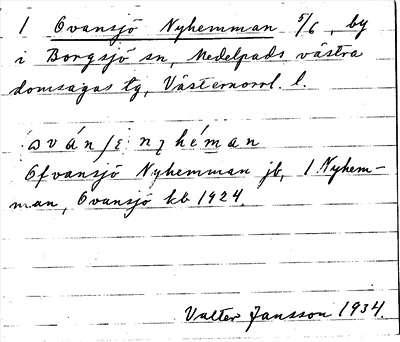 1 Ovansjö Nyhemman 5/6, by
i Borgsjö sn, Medelpads västra
domsagas tg, Västernorrl. l.
Ofvansjö Nyhemman jb, 1 Nyhem-
man, Ovansjö kb 1924.
Valter Jansson 1934.